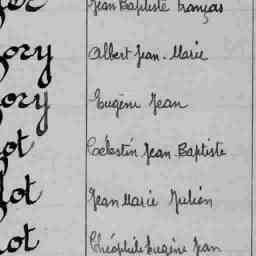 Jean Baptiste François
ory Albert Jean-Marie
ory Eugène Jean
ot Célestin Jean Baptiste
ot Jean Marie Julien
ot Théophile Eugène Jean